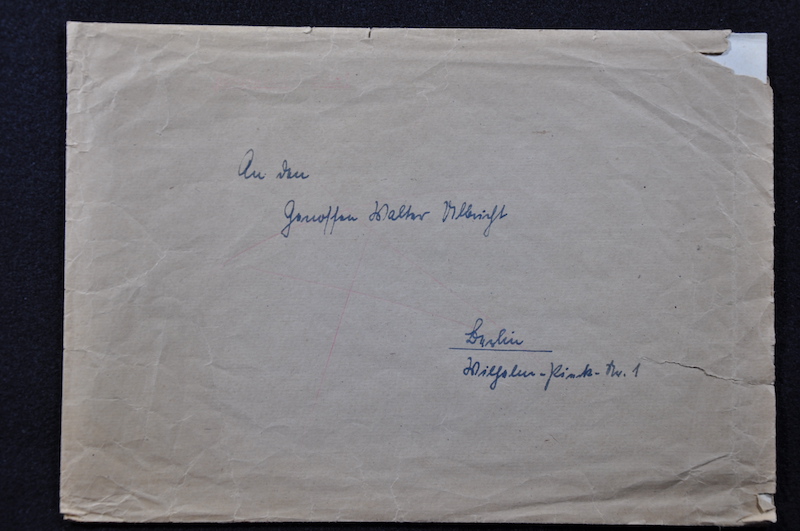 An den
Genossen Walter Ulbricht
Berlin
Wilhelm-Pieck-Str. 1